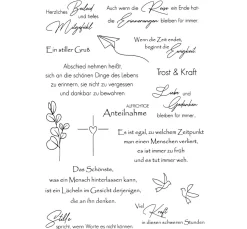 Herzliches Beileid
und tiefes
Mitgefühl
Auch wenn die Reise ein Ende hat-
die Erinnerungen bleiben für immer.
Ein stiller Gruß
Wenn die Zeit endet,
beginnt die Ewigkeit
Abschied nehmen heißt,
sich an die schönen Dinge des Lebens
zu erinnern, sie nicht zu vergessen
und dankbar zu bewahren
Trost & Kraft
Liebe und
Gedanken
bleiben für immer
AUFRICHTIGE
Anteilnahme
Es ist egal, zu welchem Zeitpunkt
man einen Menschen verliert,
es ist immer zu früh
und es tut immer weh.
Das Schönste,
was ein Mensch hinterlassen kann,
ist ein Lächeln im Gesicht derjenigen,
die an ihn denken.
Stille
spricht, wenn Worte es nicht können
Viel Kraft
in diesen schweren Stunden